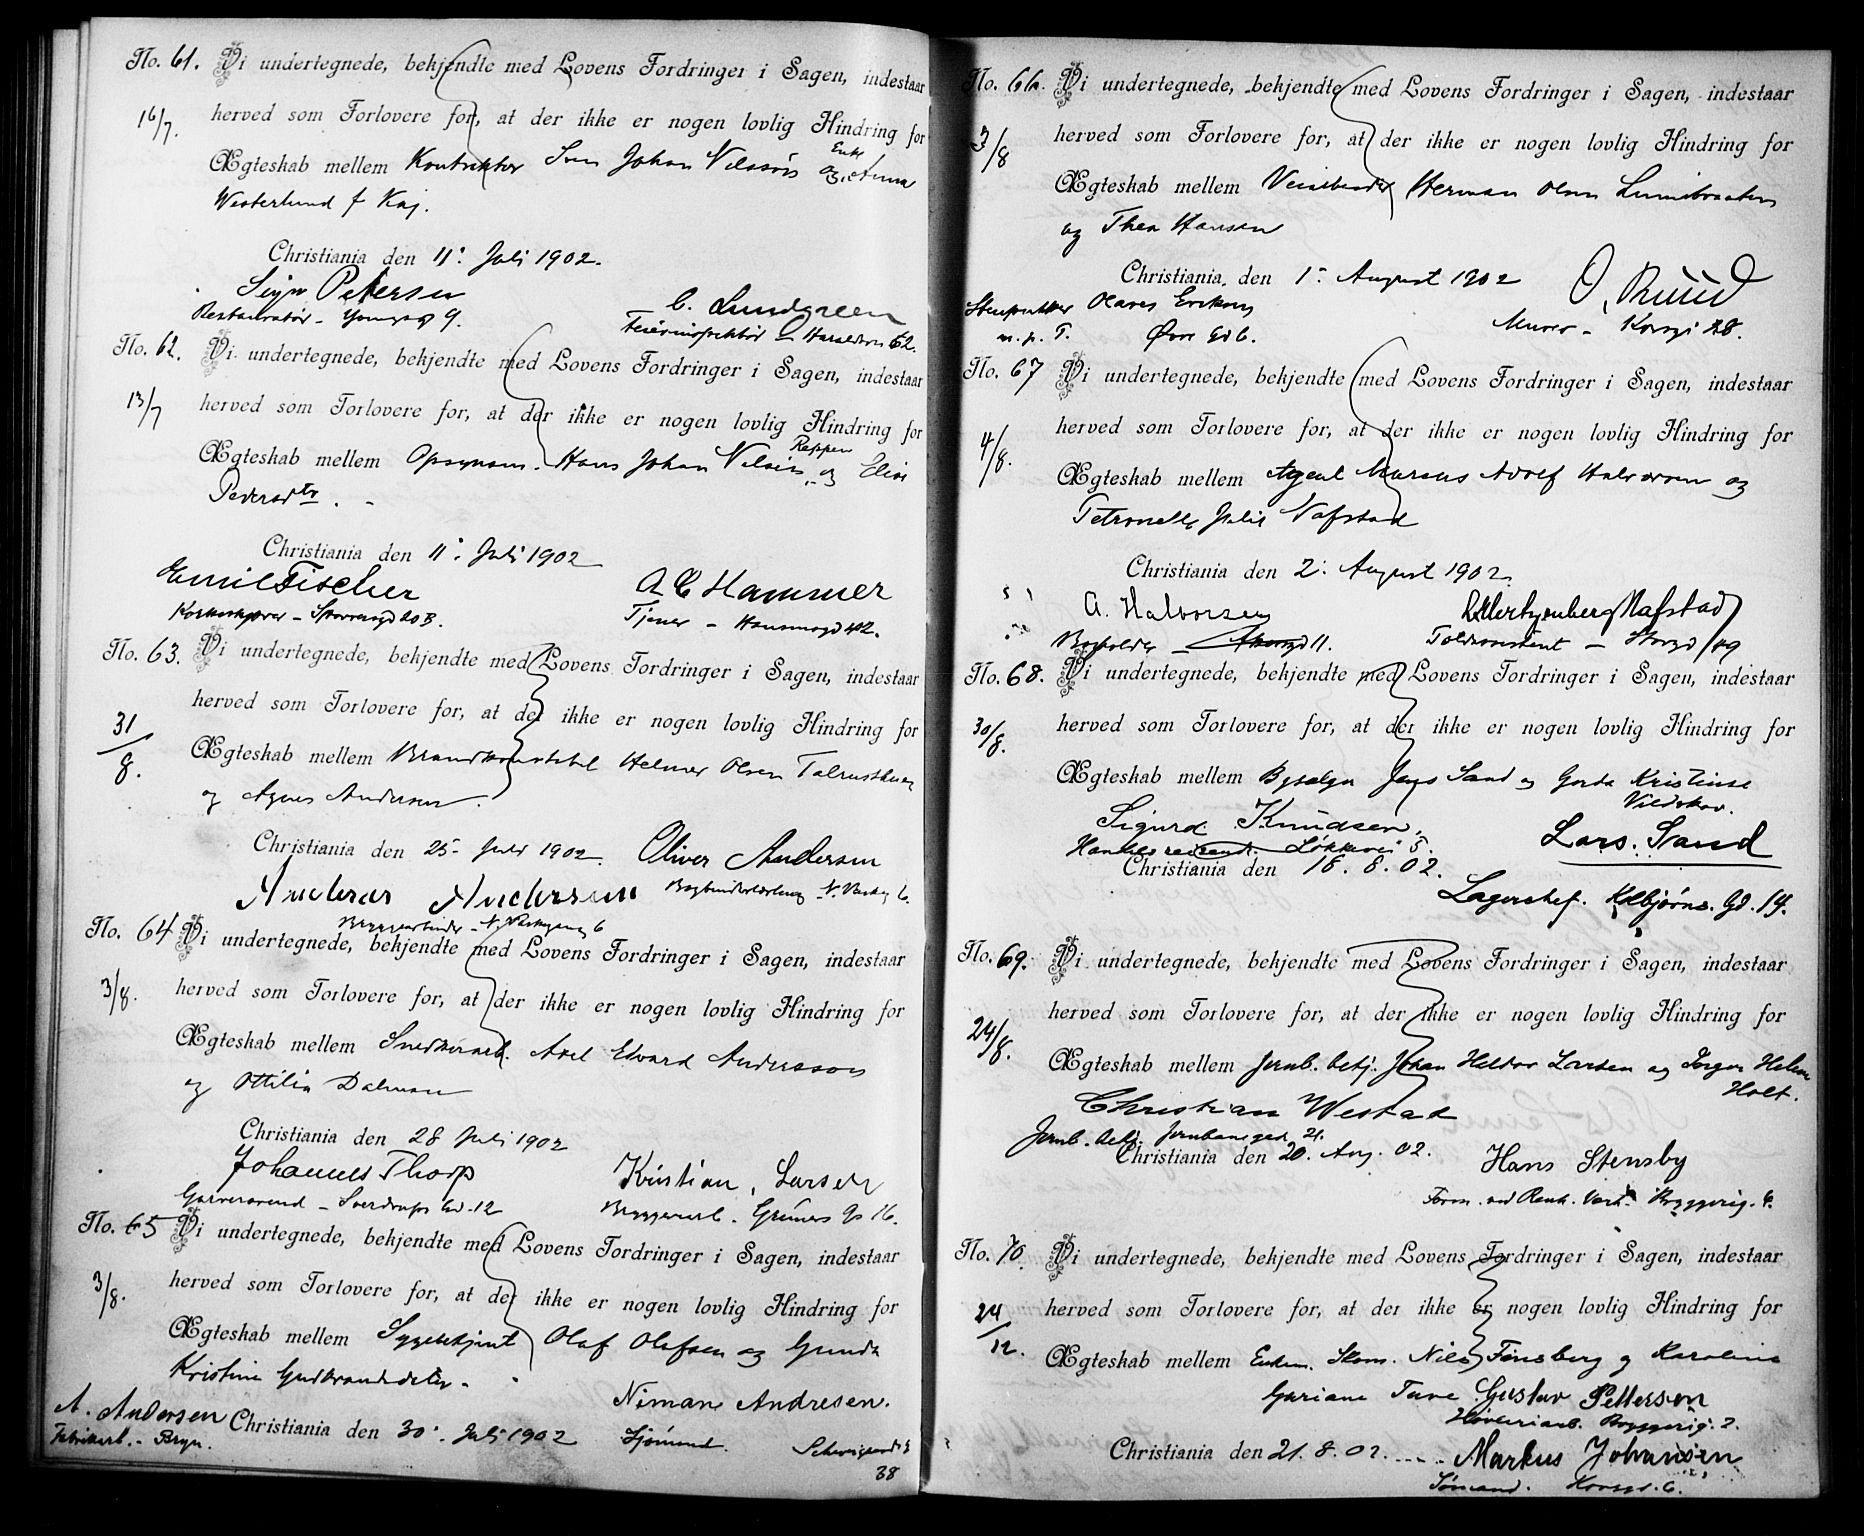 No. 61. Vi undertegnede, bekjendte med Lovens Fordringer i Sagen, indestaar
16/7. herved som Forlovere for, at der ikke er nogen lovlig Hindring for
Enke
Ægteskab mellem Johan Nilsson og Anna
Westerlund f Kaj.
Christiania den 11. Juli 1902.
Petersen
C. Lundgreen
Restauratør - 9.
62.
No. 62. Vi undertegnede, bekjendte med Lovens Fordringer i Sagen, indestaar
13/7 herved som Forlovere for, at der ikke er nogen lovlig Hindring for
Reppen
Ægteskab mellem Opsynsm. Hans Johan Nilsen og Elise
Pedersdtr.
Christiania den 11. Juli 1902
Emil Fischer A C Hammer
20 B. Tjener - Hausmansgd 42.
No. 63. Vi undertegnede, bekjendte med Lovens Fordringer i Sagen, indestaar
31/8. herved som Forlovere for, at der ikke er nogen lovlig Hindring for
Ægteskab mellem Brandkonstabel Helmer Olsen
og Agnes Andersen.
Christiania den 25. Juli 1902. Oliver Andersen
Andreas Andersen 6.
6
No. 64 Vi undertegnede, bekjendte med Lovens Fordringer i Sagen, indestaar
3/8. herved som Forlovere for, at der ikke er nogen lovlig Hindring for
Ægteskab mellem Snedkerarb. Axel Edvard Andersson
og Ottilia Dalman
Christiania den 28 Juli 1902
Johannes Thorp Kristian Larsen
Garversvend - Sverdrups Gd. 12 Bryggeriarb. Grüners Gd 16.
No. 65 Vi undertegnede, bekjendte med Lovens Fordringer i Sagen, indestaar
3/8. herved som Forlovere for, at der ikke er nogen lovlig Hindring for
Ægteskab mellem Olaf Olafsen og Gunda
Kristine Gudbrandsdtr.
A. Andersen Nimar Andresen.
Christiania den 30. Juli 1902
Fabrikarb. - Bryn. Sjømand. Schweigaardsg
38
No. 66. Vi undertegnede, bekjendte med Lovens Fordringer i Sagen, indestaar
3/8 herved som Forlovere for, at der ikke er nogen lovlig Hindring for
Ægteskab mellem Herman Olsen
og Thea Hansen
Christiania, den 1. August 1902 O. Ruud
Olaves Eriksen Murer - 28.
m. p. P. Øvre Gd 6.
No. 67 Vi undertegnede, bekjendte med Lovens Fordringer i Sagen, indestaar
4/8. herved som Forlovere for, at der ikke er nogen lovlig Hindring for
Ægteskab mellem Agent Marcus Adolf Halvorsen og
Petronelle Julie Nafstad
Christiania den 2. August 1902.
A. Halvorsen Nafstad
Bogholder 11. Toldassistent - Storgd
No. 68. Vi undertegnede, bekjendte med Lovens Fordringer i Sagen, indestaar
30/8. herved som Forlovere for, at der ikke er nogen lovlig Hindring for
Ægteskab mellem Jens Sand og Gerda Kristine
Vildskov.
Sigurd Knudsen, Lars. Sand
Handelsreisende. Løkkevei 5.
Christiania den 18. 8. 02.
Lagerchef. Kolbjørns. Gd. 14.
No. 69. Vi undertegnede, bekjendte med Lovens Fordringer i Sagen, indestaar
24/8. herved som Forlovere for, at der ikke er nogen lovlig Hindring for
Ægteskab mellem Jernb. betj. Johan Larsen og Helene
Holt.
Christian Westad
Jernb. betj. Jernbanegaden 21.
Christiania den 20. Aug. 02. Hans Stensby
Form. ved Renh. 
No. 70. Vi undertegnede, bekjendte med Lovens Fordringer i Sagen, indestaar
24/12. herved som Forlovere for, at der ikke er nogen lovlig Hindring for
Ægteskab mellem Enkem. Skom. Nils Finsberg og Karoline
Gustav Pettersen
2.
Christiania den 21. 8. 02. Markus Johansen
Sømand. 6.